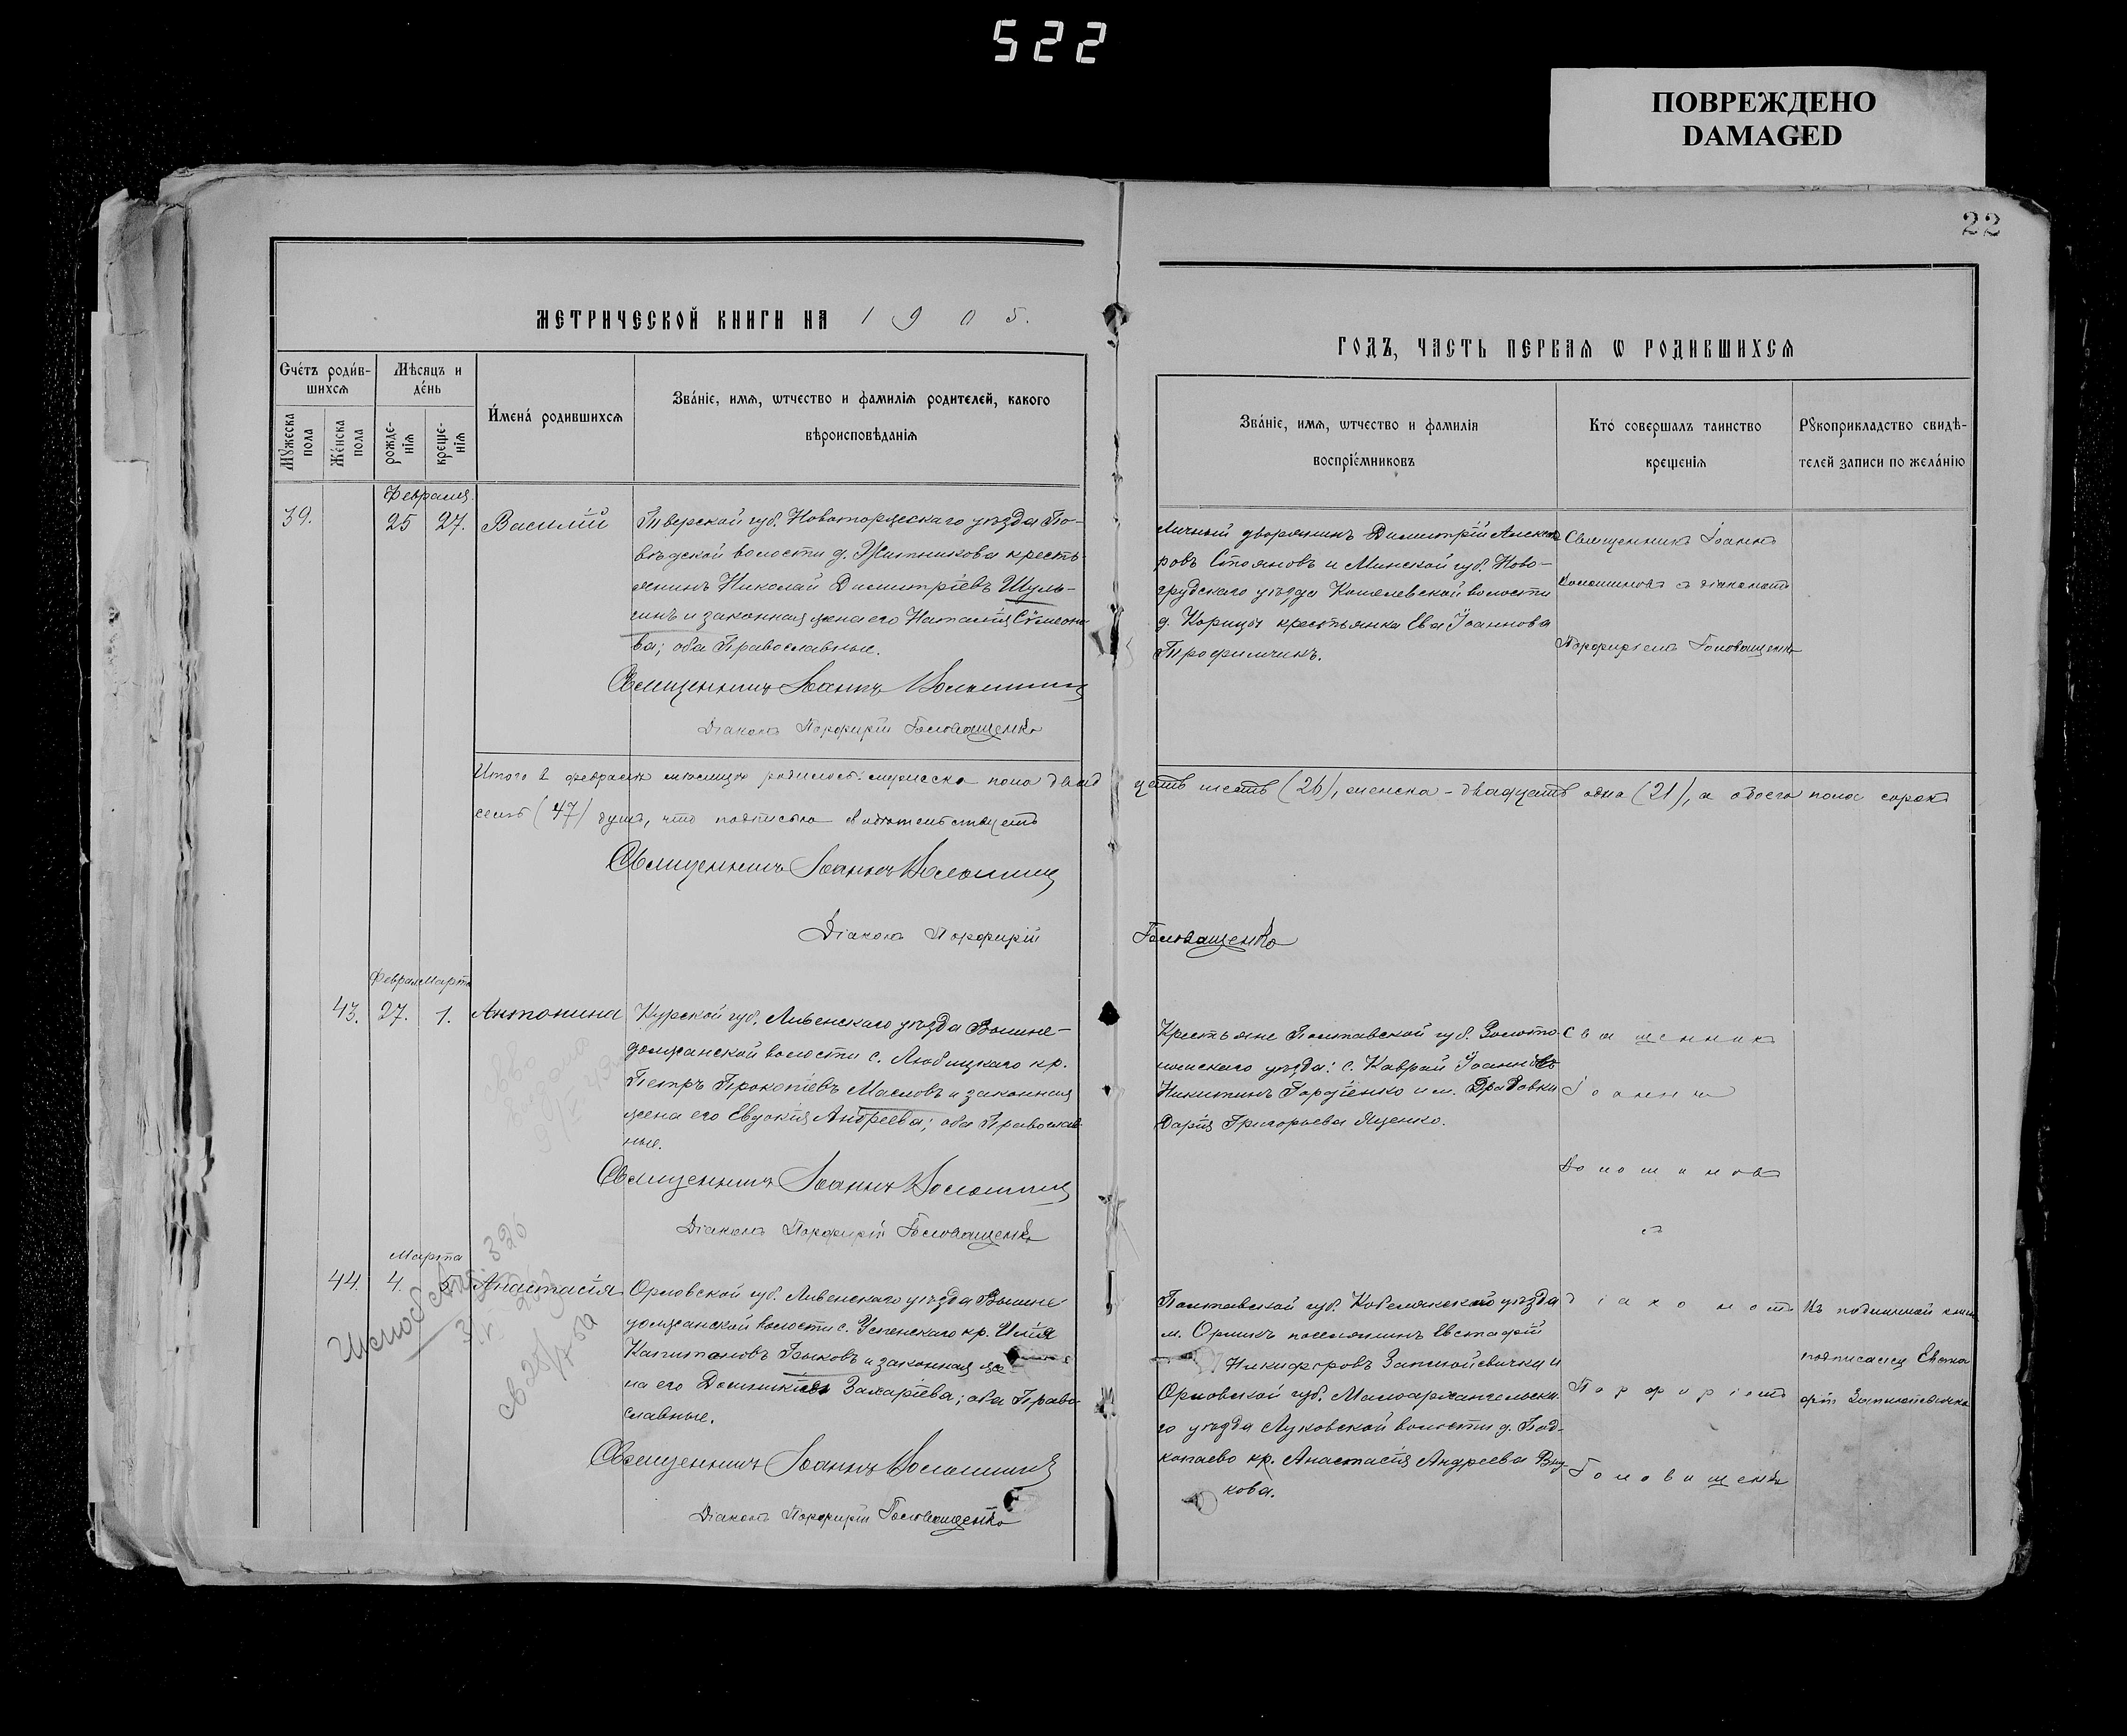 522
ПОВРЕЖДЕНО
DAMAGED
22
МЕТРИЧЕСКОЙ КНИГИ НА 1905.
ГОДЪ, ЧАСТЬ ПЕРВАЯ Ѡ РОДИВШИХСЯ
Счéтъ роди́в-
шихсѧ
Мѣсѧцъ и
дéнь
Мꙋжеска
пола
Жéнска
пола
рожде-
нїѧ
креще-
нїѧ
И́мена́ родившихсѧ
Зва́нїе, имѧ, ѿчество и фамилїѧ родителей, какого
вѣроисповѣданїѧ
Зва́нїе, имѧ, ѿчество и фамилїѧ
воспрїéмниковъ
Кто́ совершалъ таинство
крещенїѧ
Рꙋкоприкладство свидѣ-
телей записи по жела́нїю
Февраля.
39. 25 27. Василій
Тверской губ. Новоторжскаго уѣзда По-
вѣдской волости д. Житникова кресть-
янинъ Николай Димитріевъ Шуль-
гинъ и законная жена его Наталія Сѵмеоно-
ва; оба Православные.
Священникъ Іоаннъ Волошинъ
Діаконъ Порфирій Головащенко
Личный дворянинъ Димитрій
ровъ Стояновъ и Минской губ. Ново-
грудскаго уѣзда Кошелевской волости
д. Корицы крестьянка Ева Іоаннова
Трофимчикъ.
Священникъ Іоаннъ
Волошиновъ съ діакономъ
Порфиріемъ Головащенко
Итого въ февралѣ мѣсяцѣ родилось: мужеска пола двадцать шесть (26), женска - двадцать одна (21), а обоего пола сорокъ
семь (47) душъ, что подписью свидѣтельствуемъ
Священникъ Іоаннъ Волошинъ
Діаконъ Порфирій Головащенко
Феврал Марта
43. 27. 1. Антонина
Курской губ. Ливенскаго уѣзда Вышне-
должанской волости с. Любицкаго кр.
Петръ Прокопіевъ Масловъ и законная
жена его Евдокія Андреева; оба Православ-
ные.
Священникъ Іоаннъ Волошинъ
Діаконъ Порфирій Головащенко
Крестьяне Полтавской губ. Золото-
ношскаго уѣзда: с. Каврай Іоаннъ
Никитинъ Гордіенко и м. Драбовки
Дарія Григорьева Яценко.
Священникъ
Іоаннъ
Волошиновъ
съ
Марта
44. 4. 5. Анастасія
Орловской губ. Ливенскаго уѣзда Вышне
должанской волости с. Успенскаго кр. Илія
Капитоновъ Быковъ и законная же-
на его Домникія Захаріева; оба Право-
славные.
Священникъ Іоаннъ Волошинъ
Діаконъ Порфирій Головащенко
Полтавской губ. Кобелякскаго уѣзда
м. Орликъ поселянинъ Евстафій
Никифоровъ и
Орловской губ. Малоархангельска-
го уѣзда Луковской волости д. Под-
копаево кр. Анастасія Андреева Вну-
кова.
діакономъ
Порфиріемъ
Головащенко
Къ подлинной книгѣ
подписался Евста-
фій
326